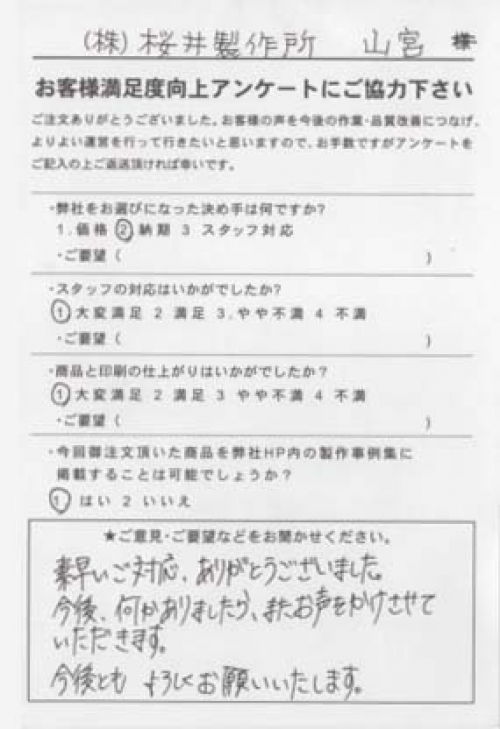 (株)桜井製作所 山宮 様
お客様満足度向上アンケートにご協力下さい
ご注文ありがとうございました。お客様の声を今後の作業・品質改善につなげ、
よりよい運営を行って行きたいと思いますので、お手数ですがアンケートを
ご記入の上ご返送頂ければ幸いです。
・弊社をお選びになった決め手は何ですか?
1.価格 2 納期 3 スタッフ対応
・ご要望( )
・スタッフの対応はいかがでしたか?
1 大変満足 2 満足 3.やや不満 4 不満
・ご要望( )
・商品と印刷の仕上がりはいかがでしたか?
1 大変満足 2 満足 3 やや不満 4 不満
・ご要望( )
・今回御注文頂いた商品を弊社HP内の製作事例集に
掲載することは可能でしょうか?
1 はい 2 いいえ
★ご意見・ご要望などをお聞かせください。
素早いご対応、ありがとうございました。
今後、何かありましたら、またお声をかけさせて
いただきます。
今後とも よろしくお願いいたします。